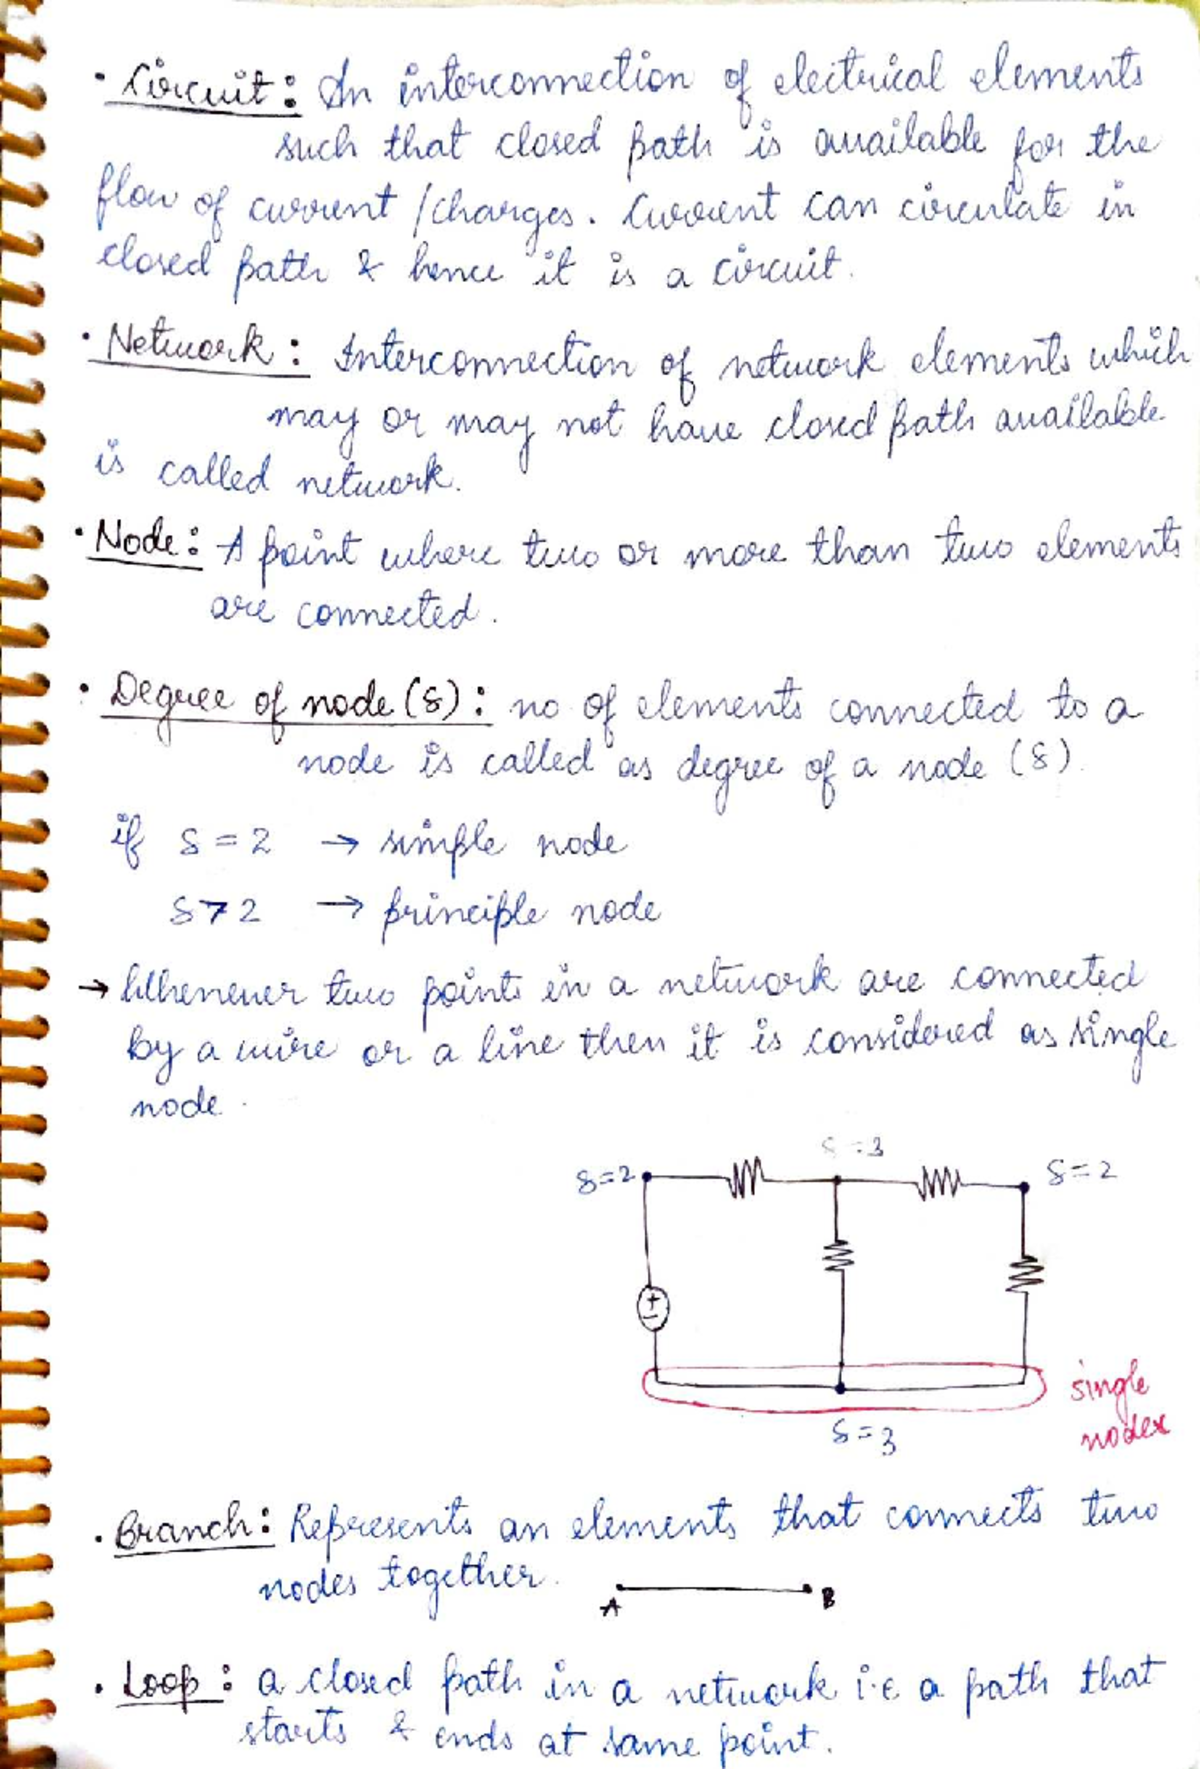 • Circuit : An interconnection of electrical elements
such that closed path is available for the
flow of current / charges. Current can circulate in
closed path & hence it is a circuit.
• Network : Interconnection of network elements which
may or may not have closed path available
is called network.
• Node : A point where two or more than two elements
are connected.
• Degree of node (δ) : no. of elements connected to a
node is called as degree of a node (δ).
if δ = 2 → simple node
δ > 2 → principle node
→ Whenever two points in a network are connected
by a wire or a line then it is considered as single
node.
δ = 3
δ = 2
δ = 2
+
-
single
nodes
δ = 3
• Branch : Represents an elements that connects two
nodes together.
A B
• Loop : a closed path in a network i.e a path that
starts & ends at same point.